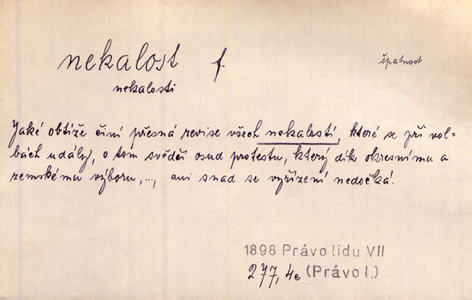 nekalost f. špatnost
nekalosti
Jaké obtíže činí přesná revise všech nekalostí, které se při vol=
bách udály, o tom svědčí osud protestu, který dík okresnímu a
zemskému výboru,..., ani snad se vyřízení nedočká.
1898 Právo lidu VII
277, 4c (Právo l.)